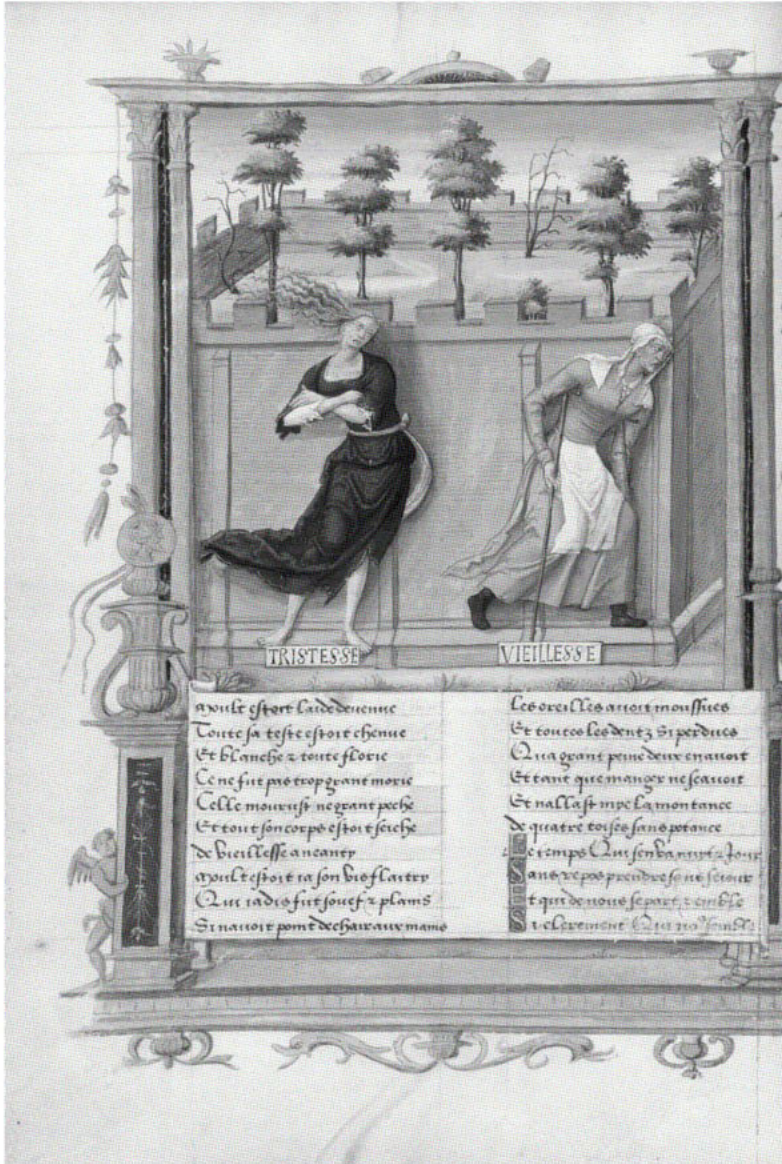 TRISTESSE
VIEILLESSE
Moult estoit laide devenue
Toute sa teste estoit chenue
Et blanche & toute florie
Ce ne fut pas trop grant morie
Celle mourust ne grant peche
Et tout son corps estoit seiche
de vieillesse aneanty
Moult estoit ia son vis flaitry
Qui iadis fut souef & plains
Si navoit point de chair aux mains
Les oreilles avoit moussues
Et toutes les dentz si perdues
Qua grant peine deux en avoit
Et tant que manger ne scavoit
Et nallast mye la montance
de quatre toises sans potance
Le temps Qui sen va nuyt & Jour
Sans repos prendre sans seiour
Et qui de nous se part & emble
Si celeement Quil nous semble